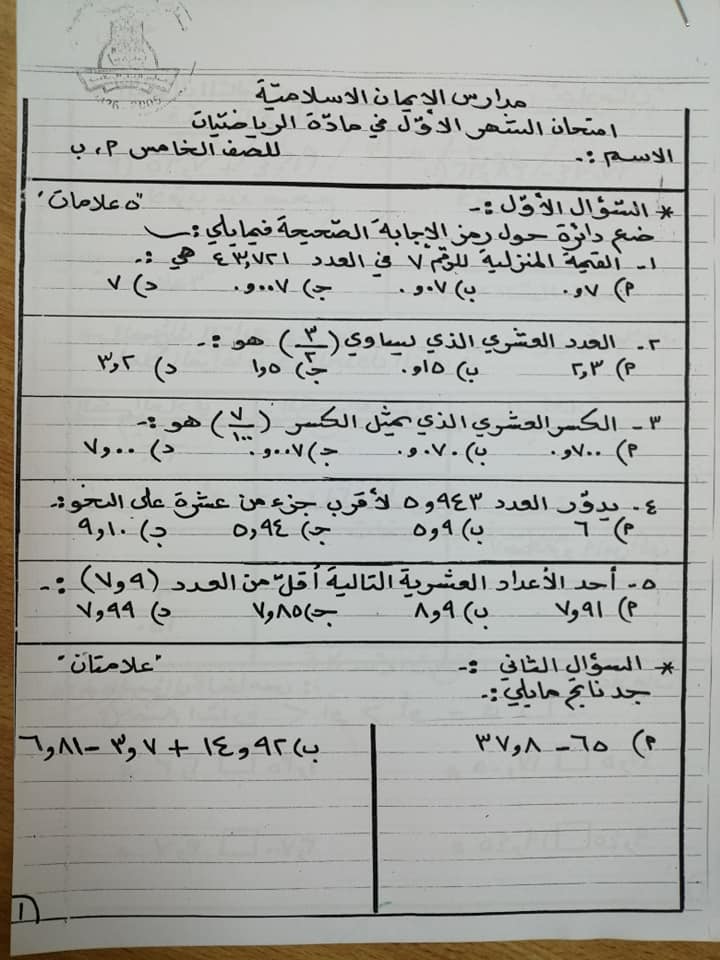 مدارس الإيمان الاسلاميّة
امتحان الشهر الأوّل في مادّة الرياضيّات
الاسم :- للصف الخامس أ، ب
* السؤال الأوّل :- "٥ علامات"
ضع دائرة حول رمز الإجابة الصّحيحة فيما يلي :-
١- القيمة المنزلية للرقم ٧ في العدد ٤٣,٧٢١ هي :-
أ) ٠,٧ ب) ٠,٠٧ جـ) ٠,٠٠٧ د) ٧
٢- العدد العشري الذي يساوي (٣/٢) هو :-
أ) ٢,٣ ب) ٠,١٥ جـ) ١,٥ د) ٣,٢
٣- الكسر العشري الذي يمثل الكسر (٧/١٠٠) هو :-
أ) ٠,٧٠٠ ب) ٠,٠٧٠ جـ) ٠,٠٠٧ د) ٧,٠٠
٤- يدوّر العدد ٥,٩٤٣ لأقرب جزء من عشرة على النحو :-
أ) ٦ ب) ٥,٩ جـ) ٥,٩٤ د) ٩,١٠
٥- أحد الأعداد العشرية التالية أقلّ من العدد (٧,٩) :-
أ) ٧,٩١ ب) ٨,٩ جـ) ٧,٨٥ د) ٧,٩٩
* السؤال الثاني :- "علامتان"
جد ناتج ما يلي :-
أ) ٦٥ - ٣٧,٨
ب) ١٤,٩٢ + ٣,٧ - ٦,٨١
١